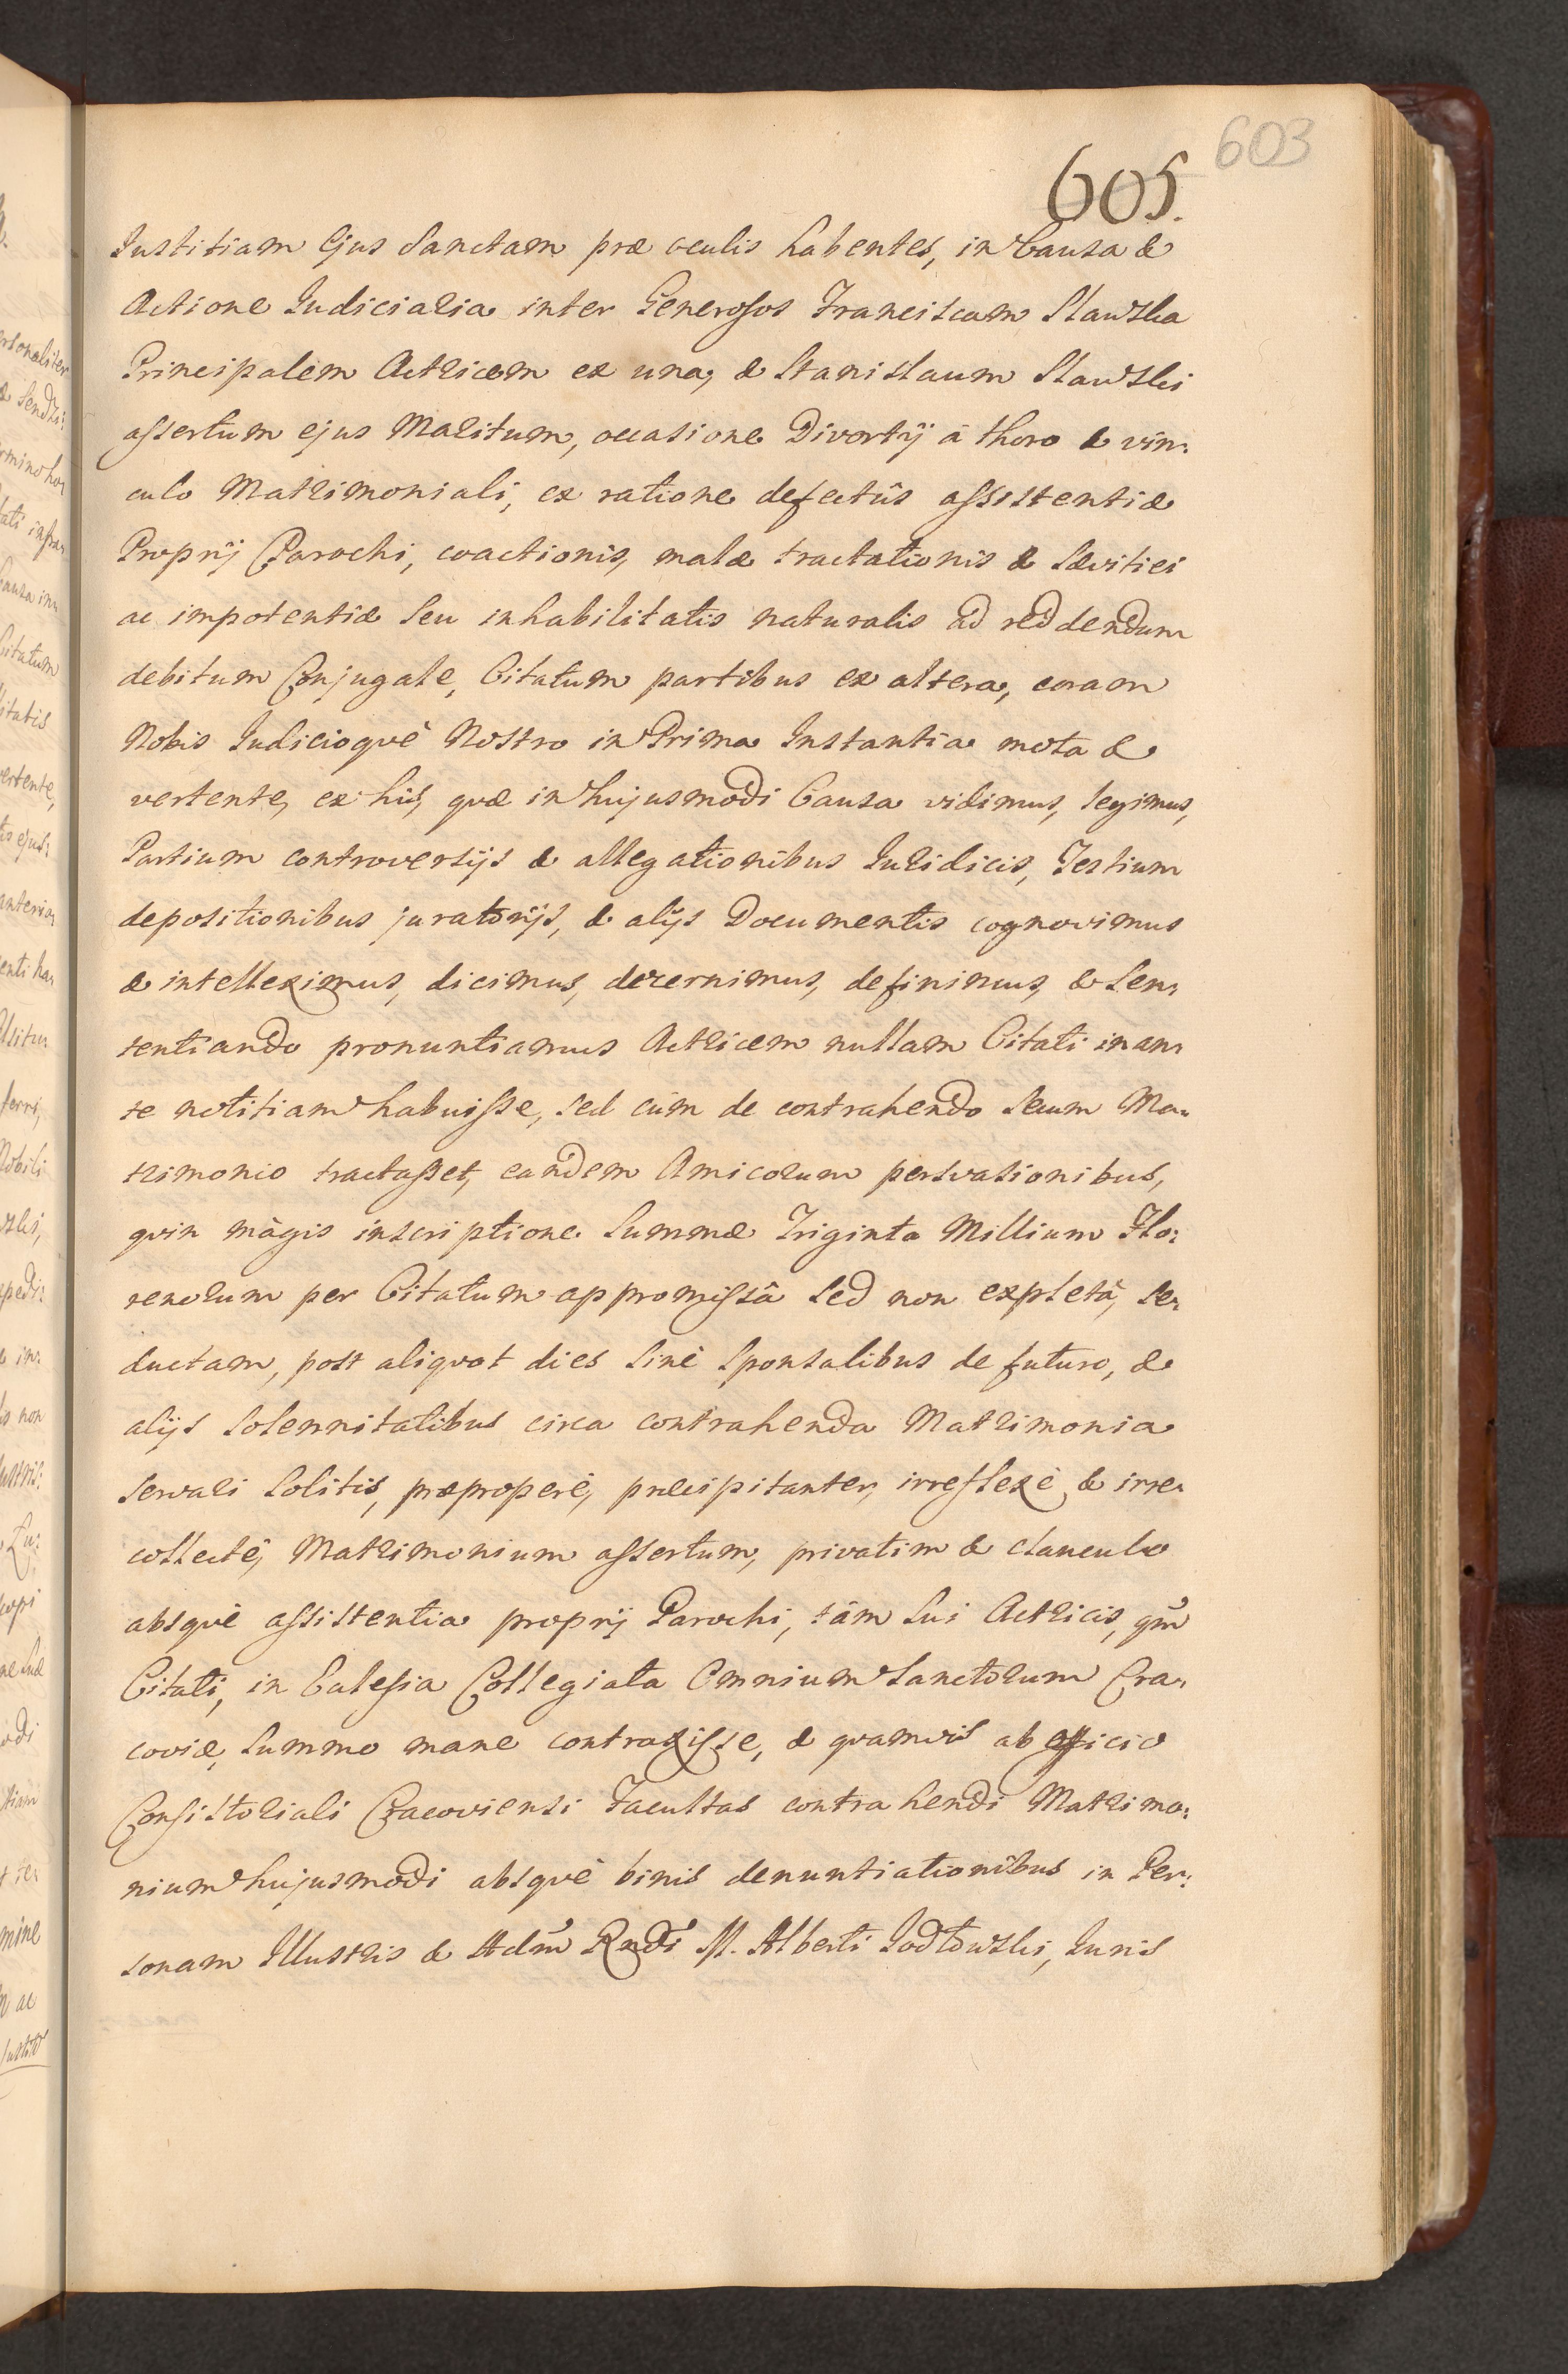 603
605.
Justitiam Ejus Sanctam præ oculis habentes, in Causa &
Actione Judiciaria inter Generosos Franciscam Stawska
Principalem Actricem ex una, & Stanislaum Stawski
assertum ejus Maritum, occasione Divortÿ â thoro & vin:
culo Matrimoniali, ex ratione defectûs assistentiæ
Proprÿ Parochi, coactionis, malæ tractationis & sævitiei
ac impotentiæ seu inhabilitatis naturalis ad reddendum
debitum Conjugale, Citatum partibus ex altera, coram
Nobis Judicioquè Nostro in Prima Instantia mota &
vertente, ex his, quæ in hujusmodi Causa vidimus, legimus,
Partium controversÿs & allegationibus Juridicis, Testium
depositionibus juratorÿs, & alÿs Documentis cognovimus
& intelleximus, dicimus, decernimus, definimus, & Sen:
tentiando pronuntiamus Actricem nullam Citati in an:
te notitiam habuisse, sed cùm de contrahendo secum Ma:
trimonio tractasset, eandem Amicorum persvasionibus,
qvin màgis inscriptione Summæ Triginta Millium Flo:
renorum per Citatum appromissâ sed non expletâ, se:
ductam, post aliqvot dies sinè Sponsalibus de futuro, &
alÿs Solennitatibus circa contrahenda Matrimonia
servari solitis, præproperè, præcipitanter, irreflexè & irre:
collectè, Matrimonium assertum, privatim & clanculo
absqvè assistentia proprÿ Parochi, tàm sui Actricis, qm̃
Citati, in Ecclesia Collegiata Omnium Sanctorum Cra:
coviæ, summo mane contraxisse, & qvamvis ab Officio
Consistoriali Cracoviensi Facultas contrahendi Matrimo:
nium hujusmodi absqvè binis denuntiationibus in Per:
sonam Illustris & Adm̃ Rndi M. Alberti Jodłowski, Juris